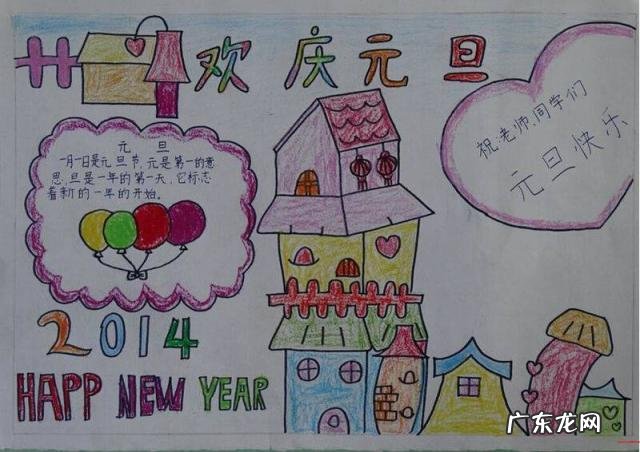 欢庆元旦
祝:老师、同学们
元旦快乐
元旦
一月一日是元旦节,元是第一的意
思,旦是一年的第一天,它标志
着新的一年的开始。
2014
HAPP NEW YEAR
广东龙网